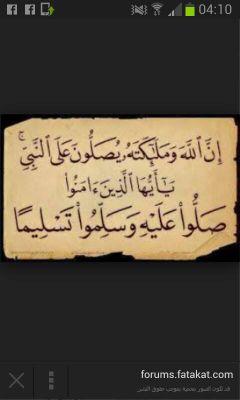 04:10
إِنَّ ٱللَّهَ وَمَلَٰٓئِكَتَهُۥ يُصَلُّونَ عَلَى ٱلنَّبِىِّ ۚ
يَٰٓأَيُّهَا ٱلَّذِينَ ءَامَنُوا۟
صَلُّوا۟ عَلَيْهِ وَسَلِّمُوا۟ تَسْلِيمًا
forums.fatakat.com
قد تكون الصور محمية بموجب حقوق النشر